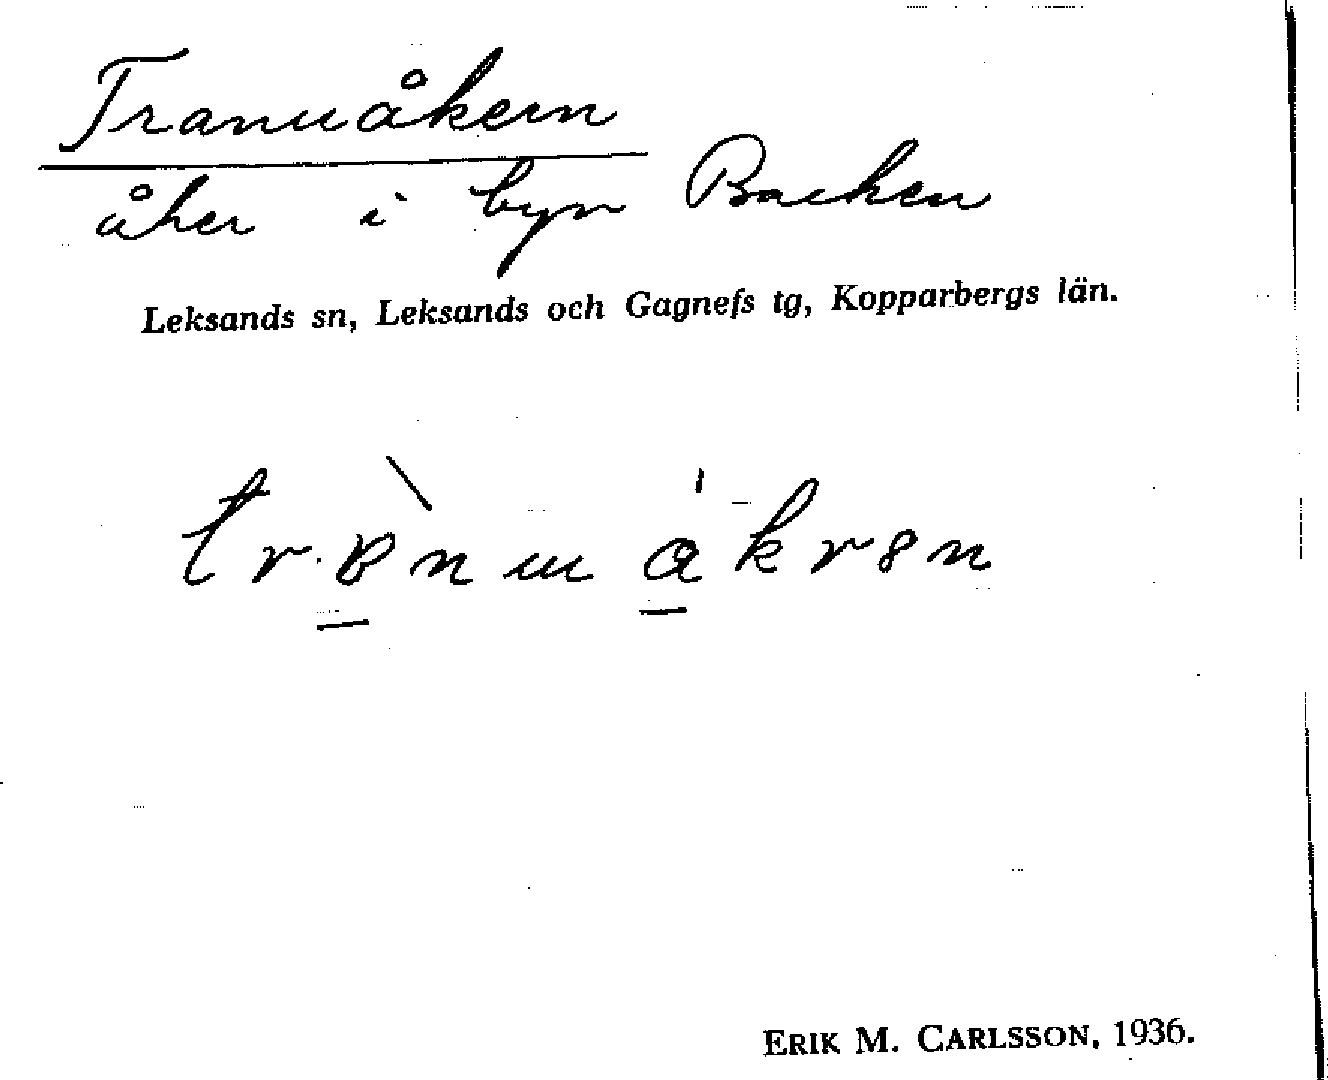 Tranuåkern
åker i byn Backen
Leksands sn, Leksands och Gagnefs tg, Kopparbergs län.
ERIK M. CARLSSON, 1936.